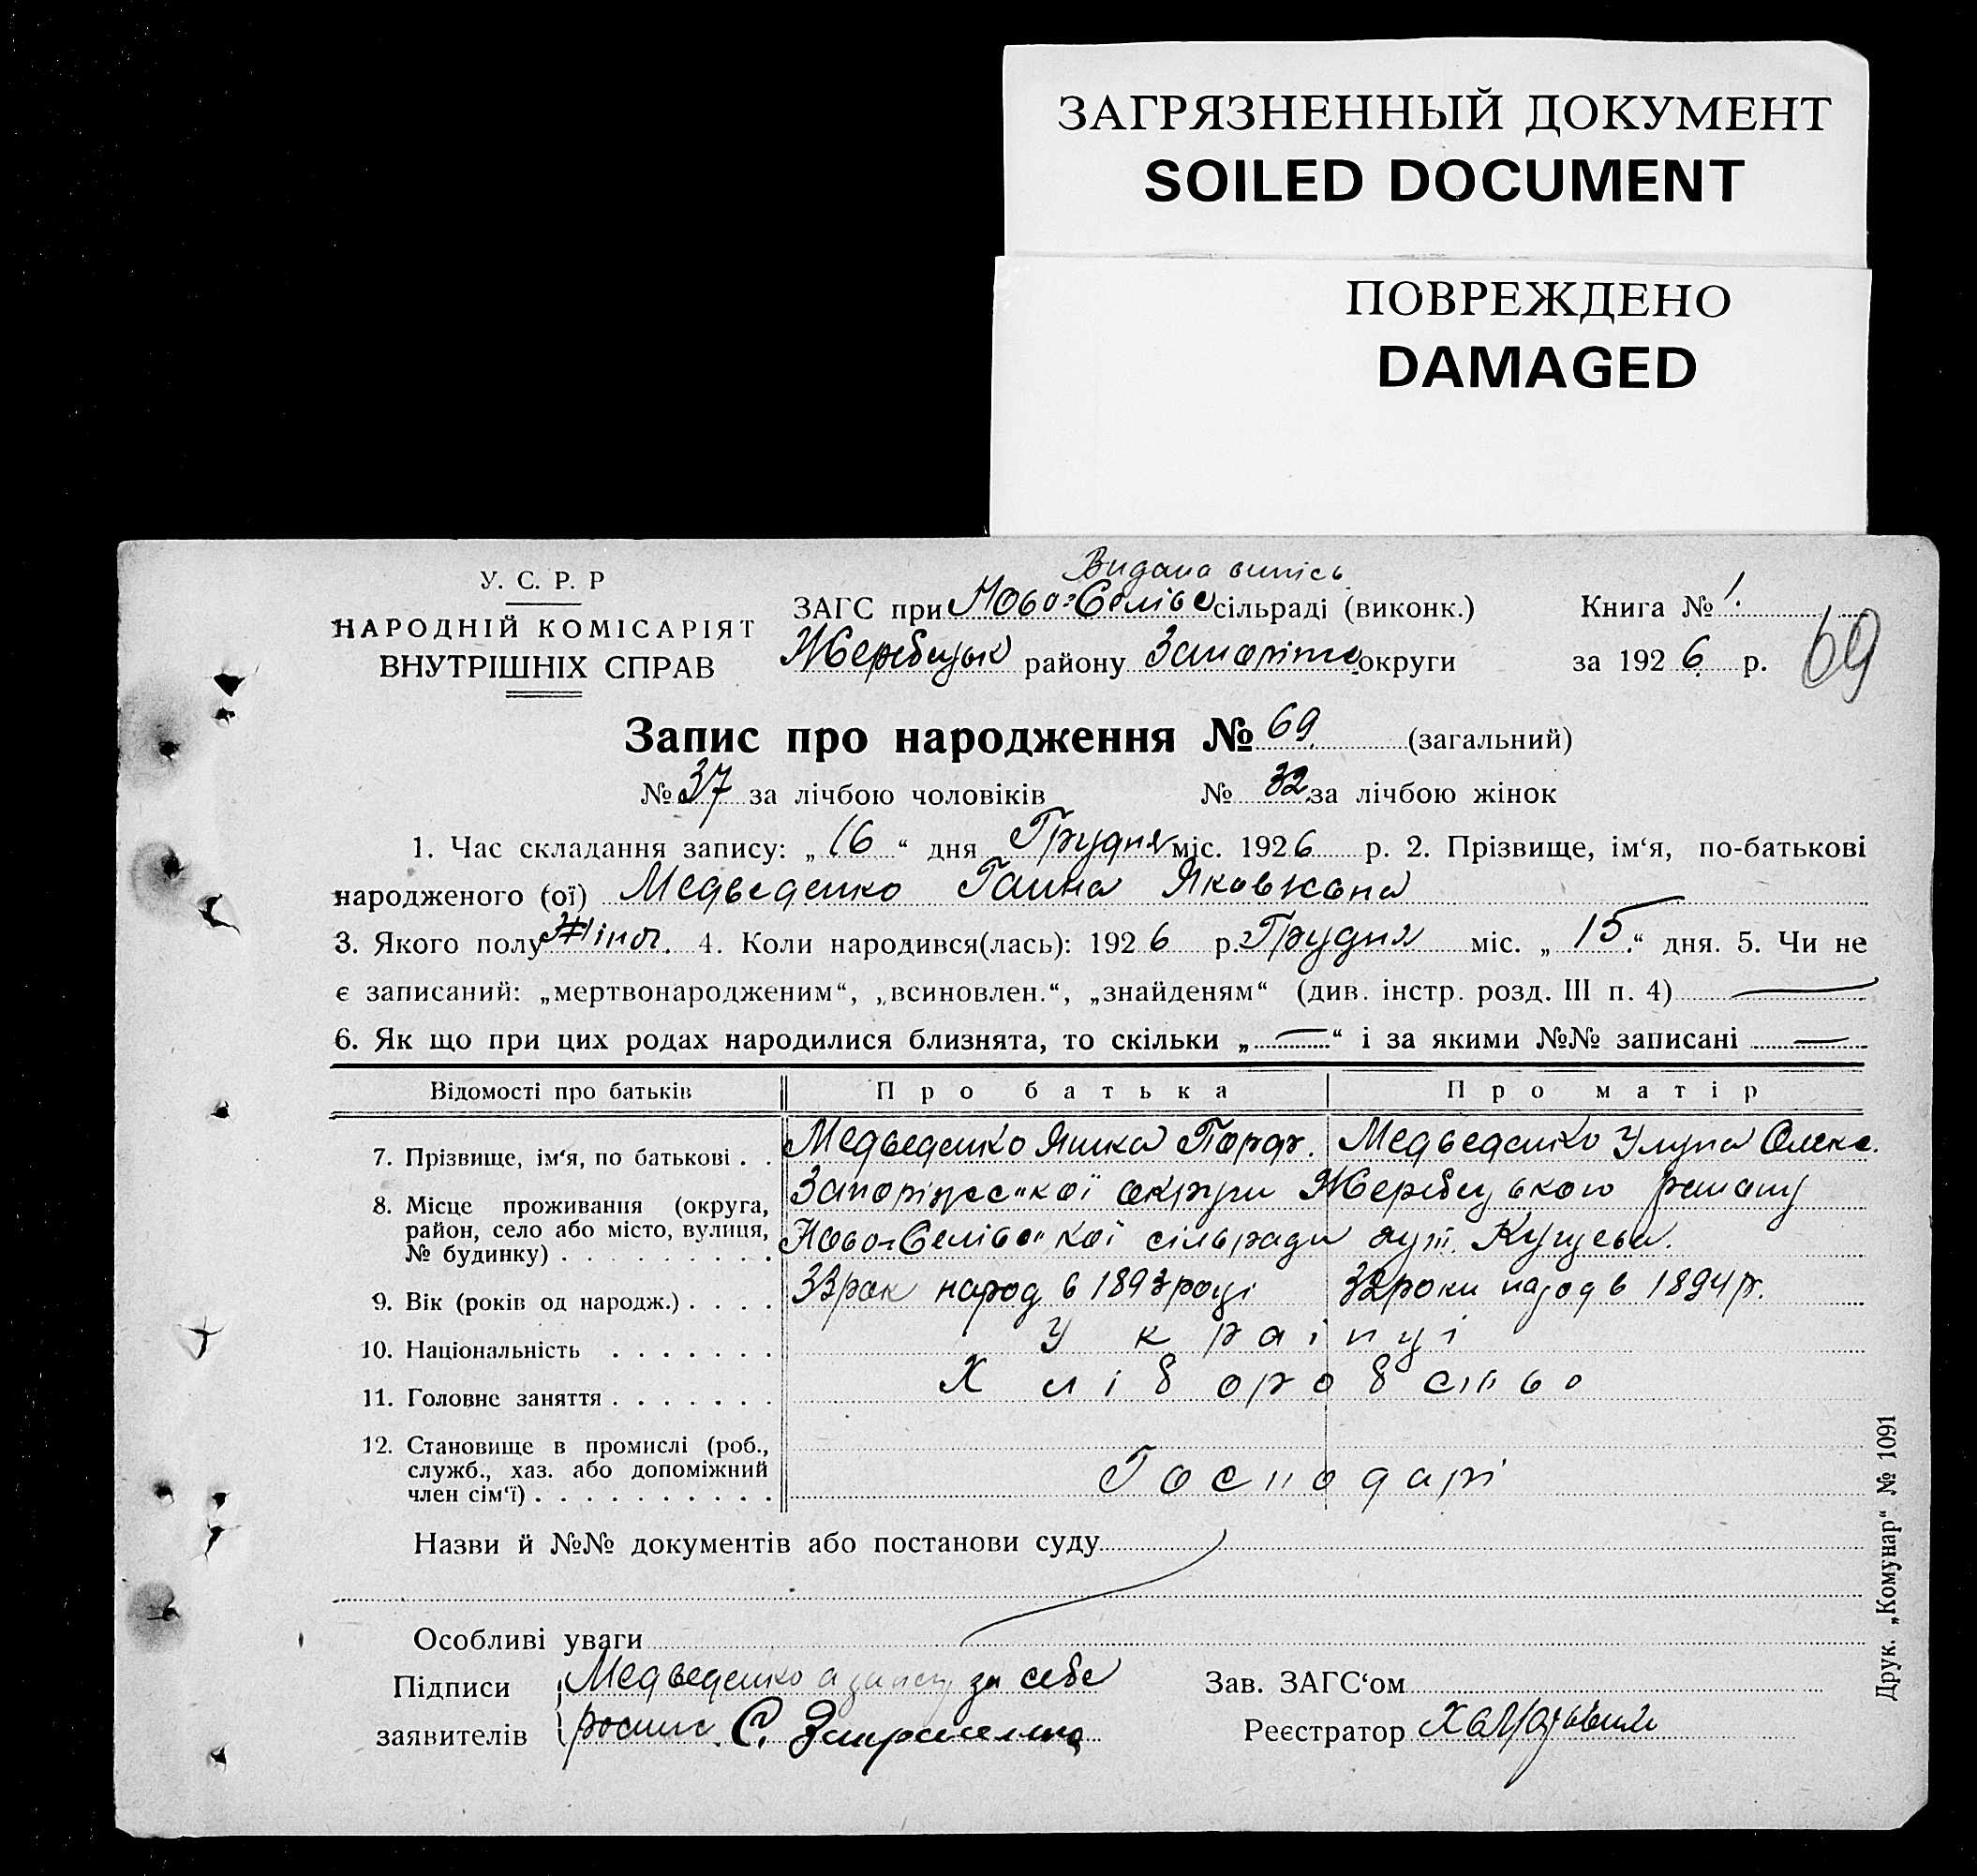 ЗАГРЯЗНЕННЫЙ ДОКУМЕНТ
SOILED DOCUMENT
ПОВРЕЖДЕНО
DAMAGED
Видано випісь
У. С. Р. Р
НАРОДНІЙ КОМІСАРІЯТ
ВНУТРІШНІХ СПРАВ
ЗАГС при Ново-Селівс сільраді (виконк.) Книга № 1.
Жеребецьк району Запоріж округи за 1926 р. 69
Запис про народження № 69 (загальний)
№ 37 за лічбою чоловіків № 32 за лічбою жінок
1. Час складання запису: „16“ дня Грудня міс. 1926 р. 2. Прізвище, ім‘я, по-батькові
народженого (ої) Медведенко Ганна Яковковна
3. Якого полу Жіноч. 4. Коли народився(лась): 1926 р. Грудня міс. „15“ дня. 5. Чи не
є записаний: „мертвонародженим“, „всиновлен.“, „знайденям“ (див. інстр. розд. III п. 4) —
6. Як що при цих родах народилися близнята, то скільки „—“ і за якими №№ записані —
Відомості про батьків Про батька Про матір
7. Прізвище, ім‘я, по батькові . . Медведенко Яшка Порфр. Медведенко Улита Олекс.
8. Місце проживання (округа, район, село або місто, вулиця, № будинку) . . . . . . . . . Запоріжс"кої округи Жеребецького району
Ново-Селівс"кої сільради хут. Кущева.
9. Вік (років од народж.) . . . . 33 рок народ в 1893 році 32 роки народ в 1894 р.
10. Національність . . . . . . . Українці
11. Головне заняття . . . . . . . Хліборобство
12. Становище в промислі (роб., служб., хаз. або допоміжний член сім‘ї) . . . . . . . . . . Господарі
Назви й №№ документів або постанови суду
Особливі уваги
Підписи Медведенко а за себе
заявителів роспис. С.
Зав. ЗАГС‘ом
Реєстратор
Друк. „Комунар“ № 1091